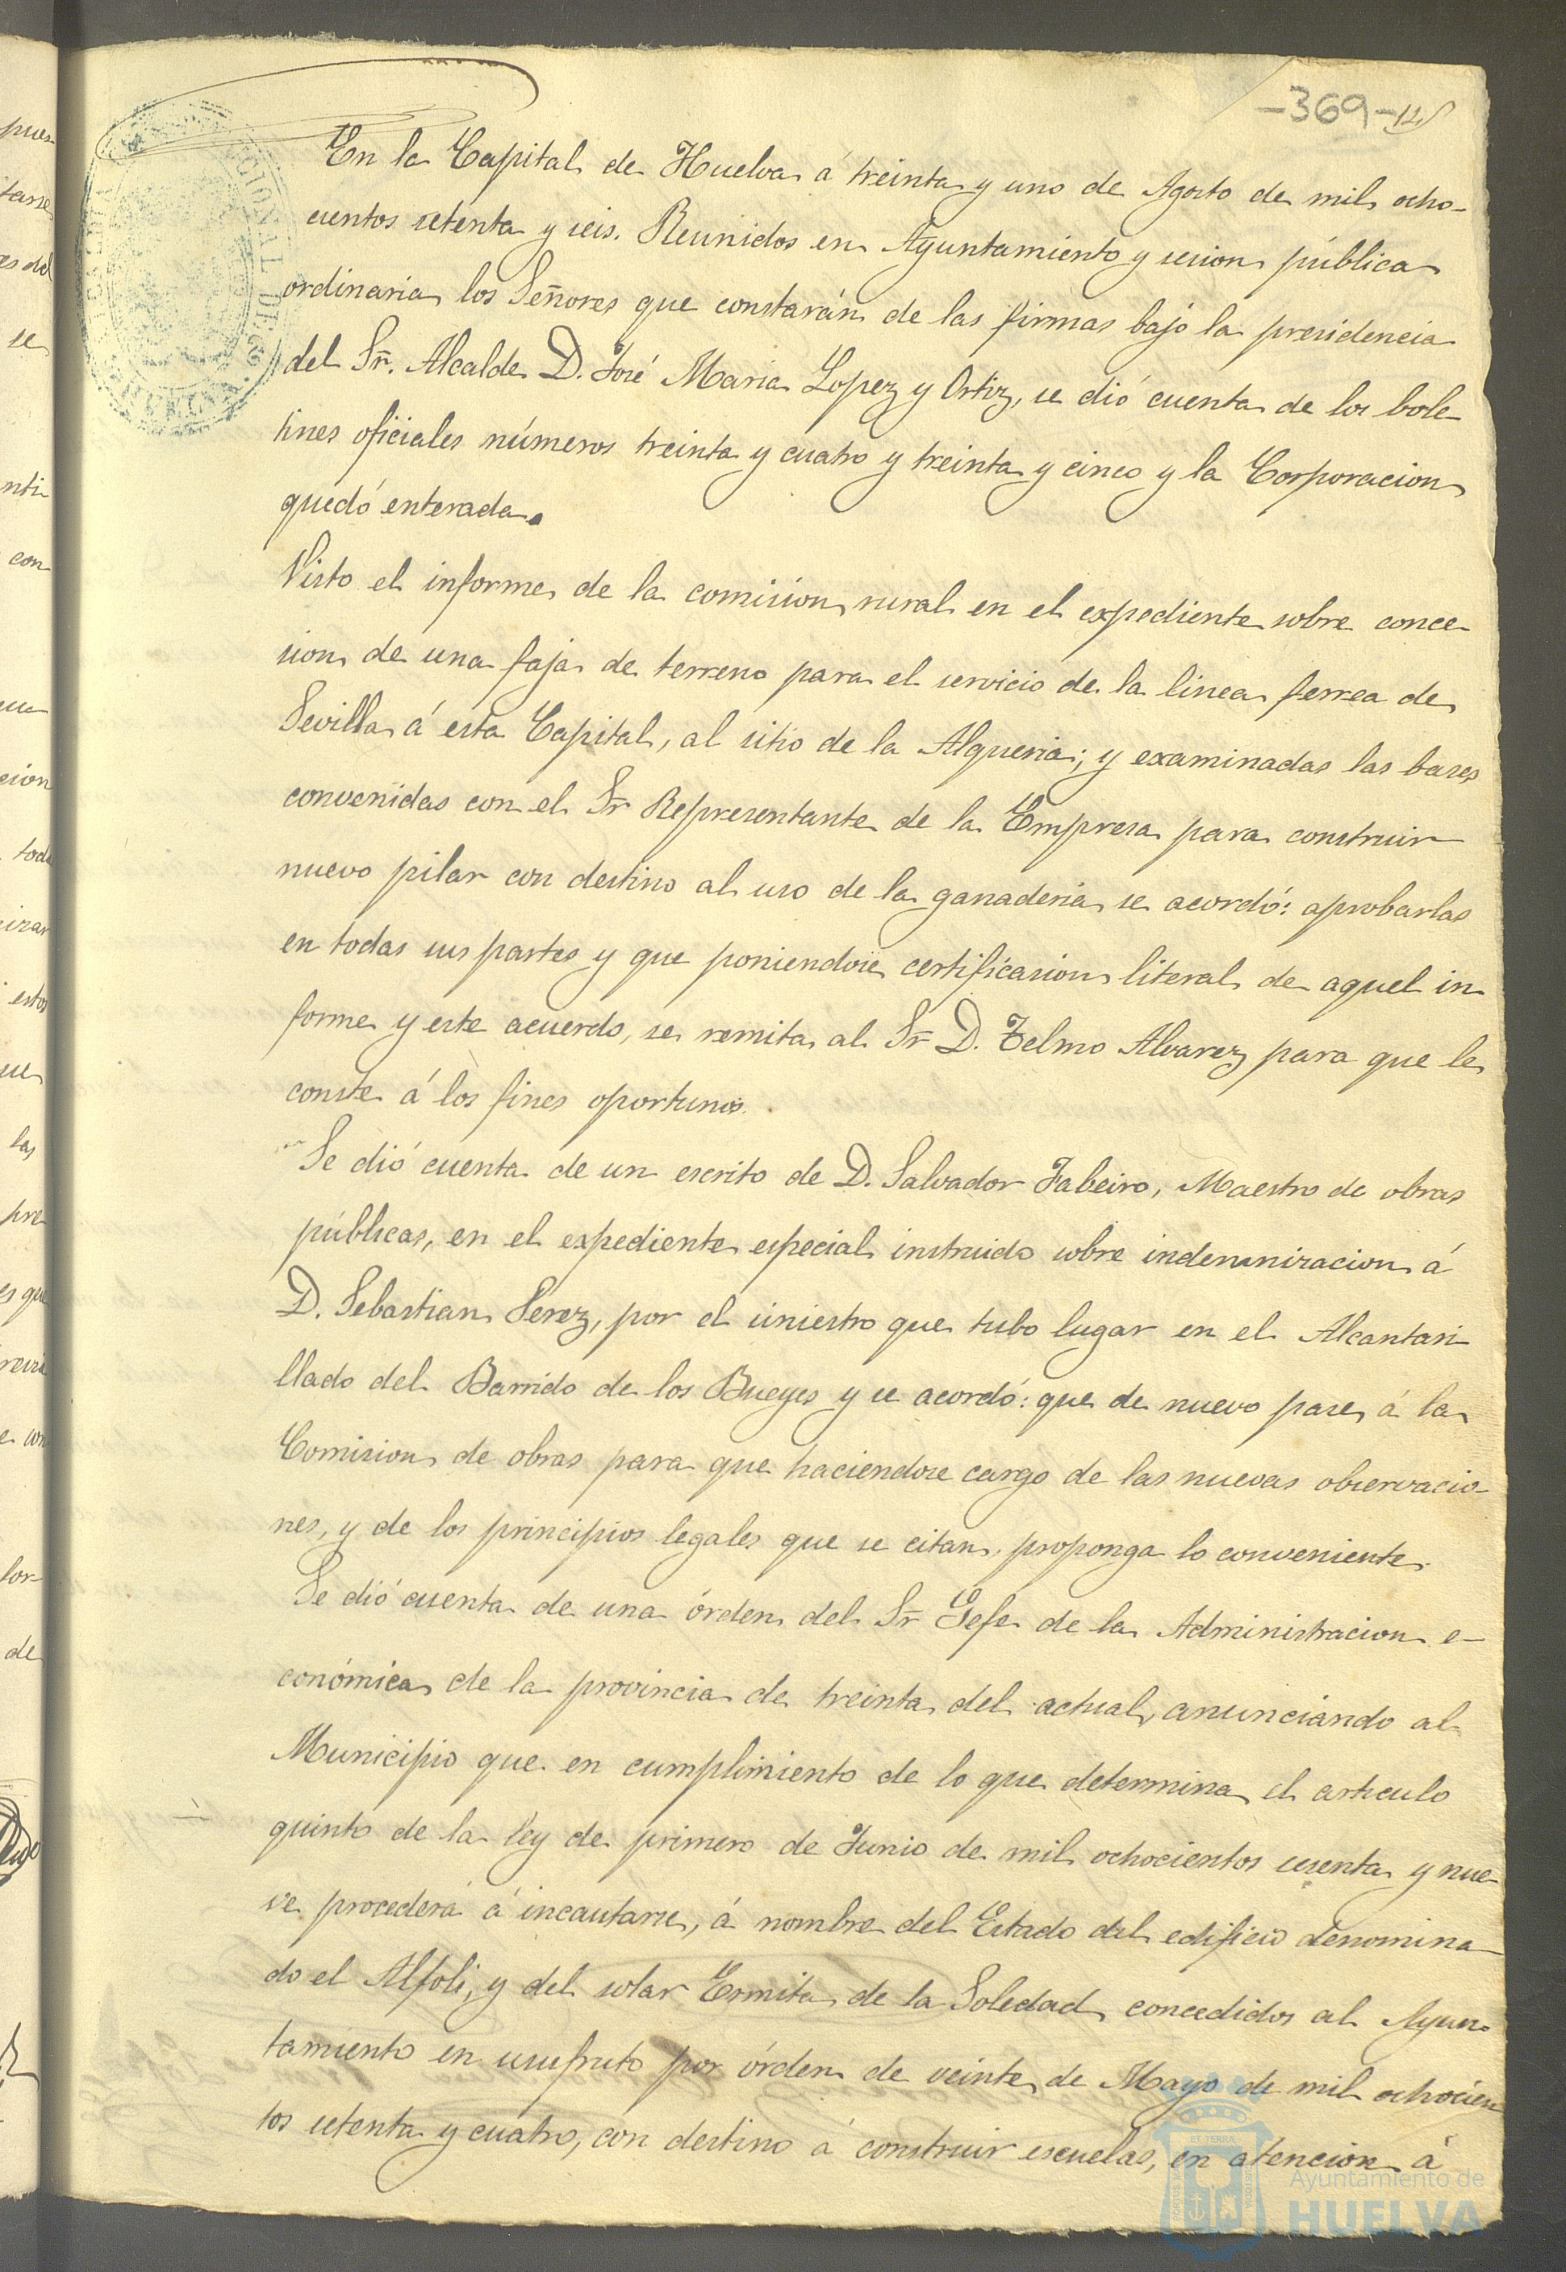 -369-
En la Capital de Huelva á treinta y uno de Agosto de mil ocho-
cientos setenta y seis. Reunidos en Ayuntamiento y sesion pública
ordinaria los Señores que constarán de las firmas bajo la presidencia
del Sr. Alcalde D. José Maria Lopez y Ortiz, se dió cuenta de los bole-
tines oficiales números treinta y cuatro y treinta y cinco y la Corporacion
quedó enterada.
Visto el informe de la comision rural en el expediente sobre conce-
sion de una faja de terreno para el servicio de la linea ferrea de
Sevilla á esta Capital, al sitio de la Alqueria; y examinadas las bases
convenidas con el Sr Representante de la Empresa para construir
nuevo pilar con destino al uso de la ganaderia se acordó: aprobarlas
en todas sus partes y que poniendose certificasion literal de aquel in-
forme y este acuerdo, se remita al Sr D. Telmo Alvarez para que le
conste á los fines oportunos.
Se dió cuenta de un escrito de D. Salvador Fabeiro, Maestro de obras
públicas, en el expediente especial instruido sobre indemnizacion á
D. Sebastian Perez, por el siniestro que tubo lugar en el Alcantari
llado del Barrido de los Bueyes y se acordó: que de nuevo pase á la
Comision de obras para que haciendose cargo de las nuevas observacio-
nes, y de los principios legales que se citan proponga lo conveniente.
Se dió cuenta de una órden del Sr Gefe de la Administracion e-
conómica de la provincia de treinta del actual, anunciando al
Municipio que en cumplimiento de lo que determina el articulo
quinto de la ley de primero de Junio de mil ochocientos sesenta y nue-
ve procederá á incautarse, á nombre del Estado del edificio denomina-
do el Alfoli, y del solar Ermita de la Soledad concedidos al Ayun-
tamiento en usufruto por órden de veinte de Mayo de mil ochocien
tos setenta y cuatro, con destino á construir escuelas, en atencion á
Ayuntamiento de
HUELVA